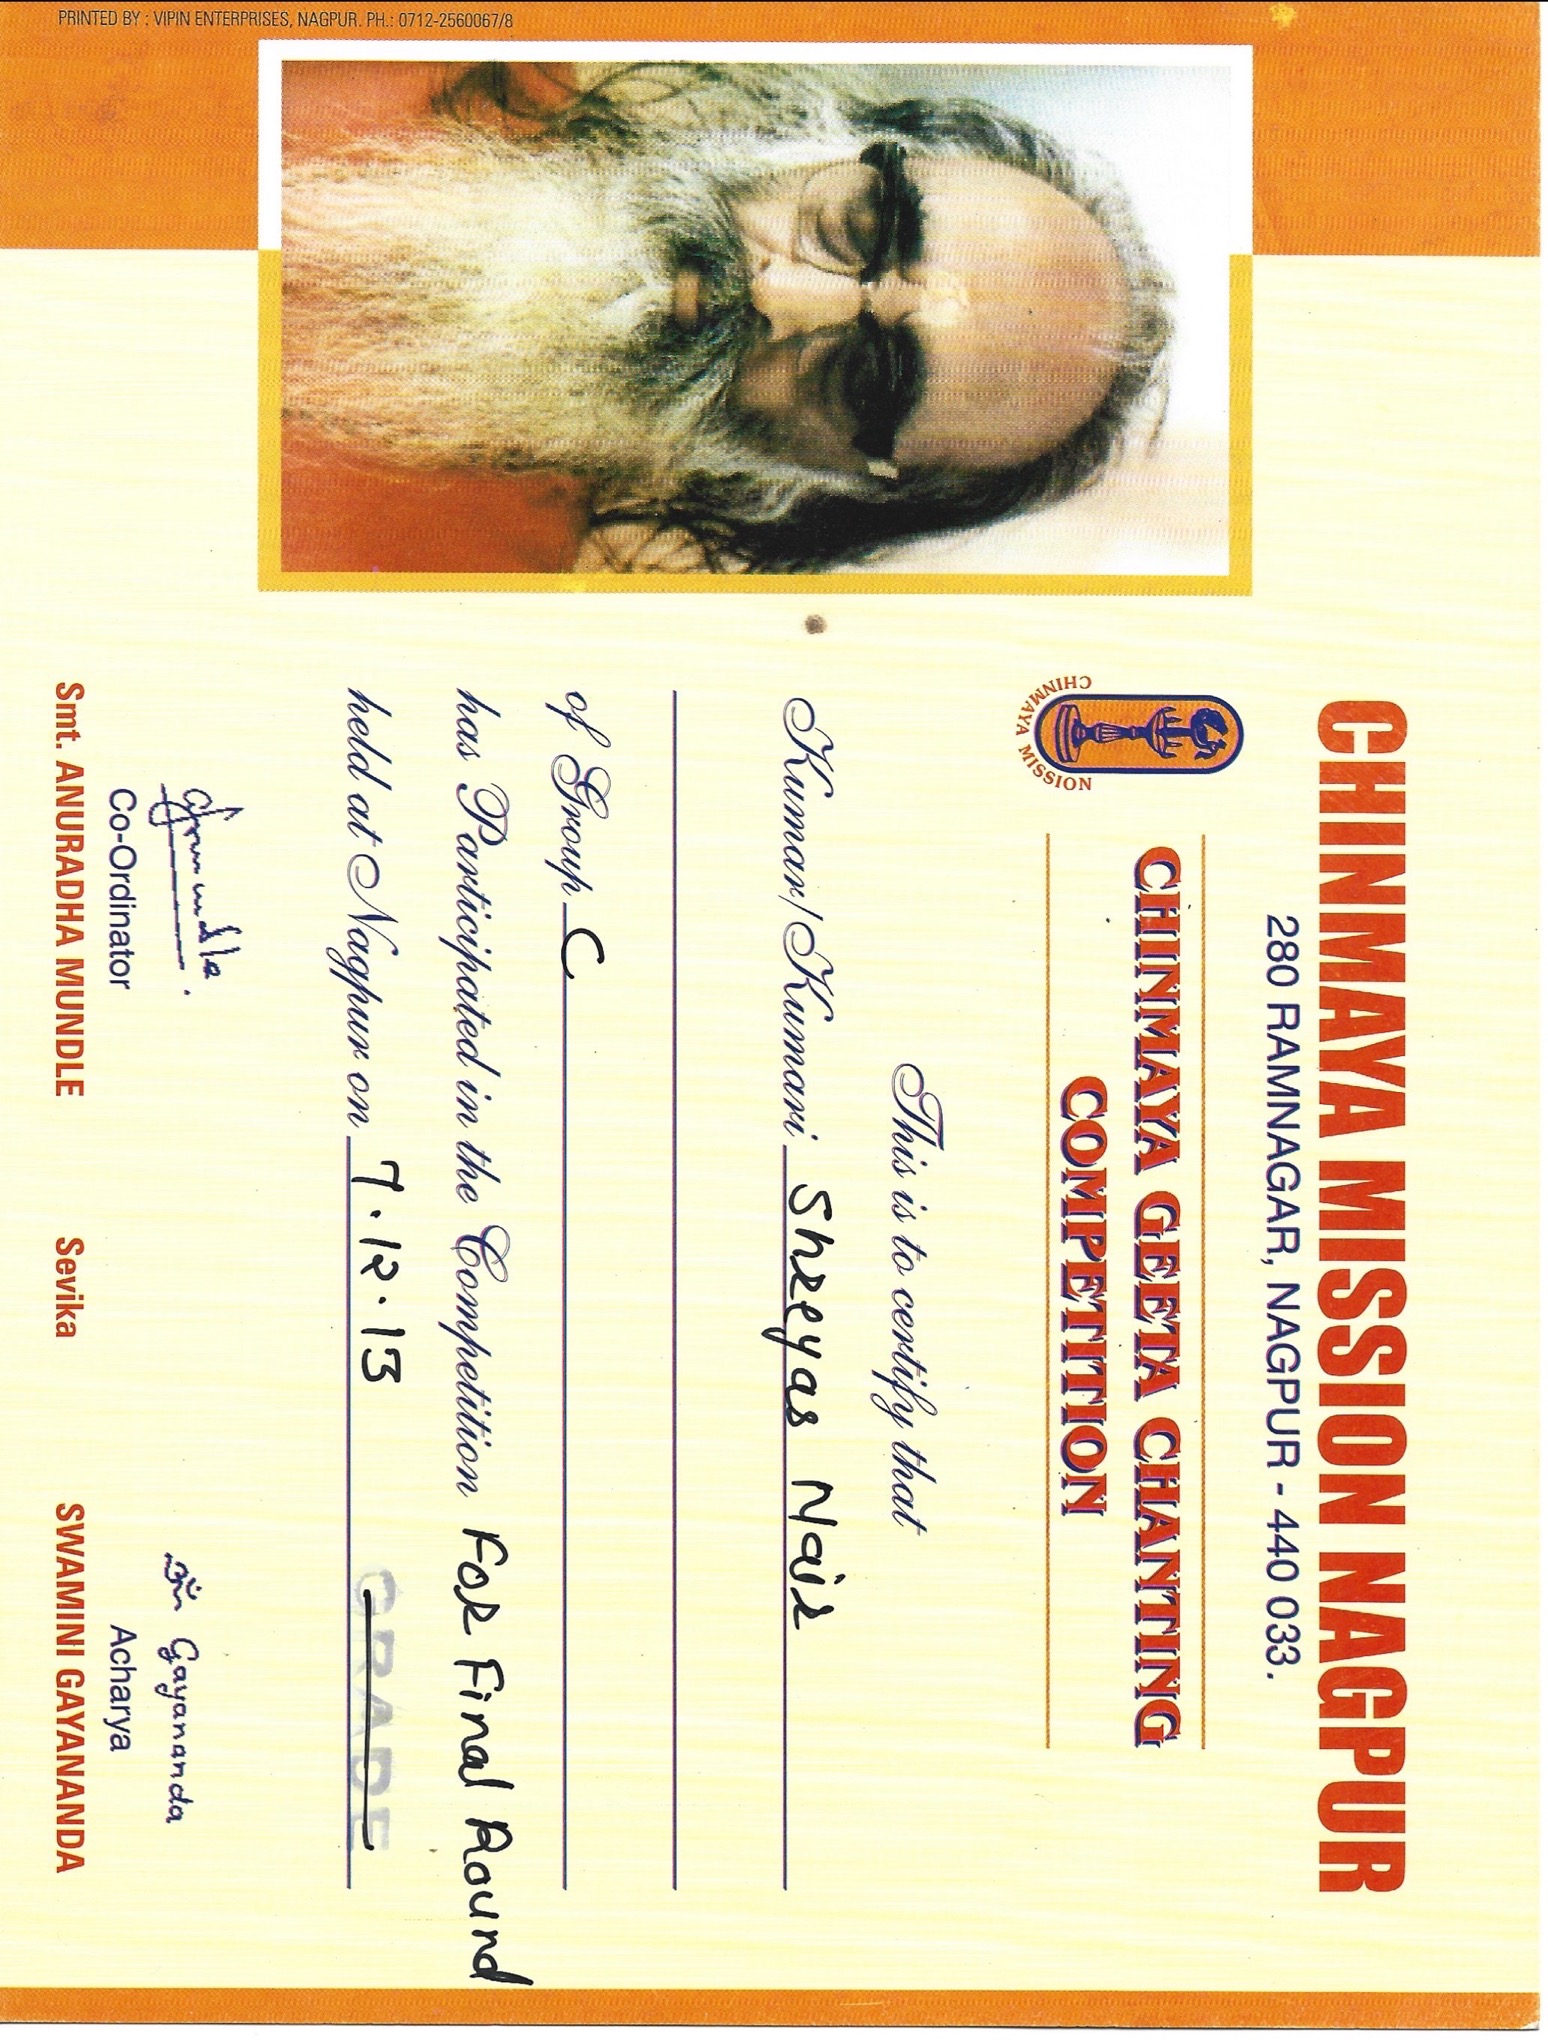 CHINMAYA MISSION NAGPUR
280 RAMNAGAR, NAGPUR - 440 033.
CHINMAYA MISSION
CHINMAYA GEETA CHANTING
COMPETITION
This is to certify that
Kumar/Kumari Shreyas Nair
of Group C
has Participated in the Competition For Final Round
held at Nagpur on 7.12.13 GRADE
ॐ Gayananda
Co-Ordinator Acharya
Smt. ANURADHA MUNDLE Sevika SWAMINI GAYANANDA
PRINTED BY : VIPIN ENTERPRISES, NAGPUR. PH.: 0712-2560067/8